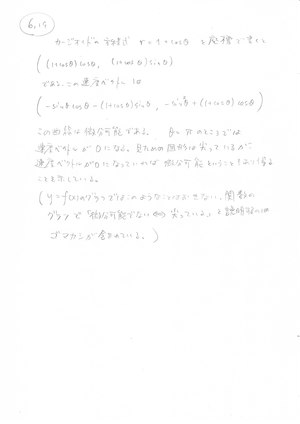 6.15
カージオイドの方程式 r = 1 + cosθ を座標で書くと
((1+cosθ)cosθ, (1+cosθ)sinθ)
である。この速度ベクトルは
(-sinθcosθ-(1+cosθ)sinθ, -sin²θ+(1+cosθ)cosθ)
この曲線は微分可能である。 θ=πのところでは
速度ベクトルが0になる。見ための図形は尖っているが
速度ベクトルが0になっていれば微分可能ということもあり得る
ことを示している。
(y=f(x)のグラフではこのようなことはおきない。関数の
グラフで「微分可能でない⇔尖っている」と説明するには
ゴマカシが含まれている。)